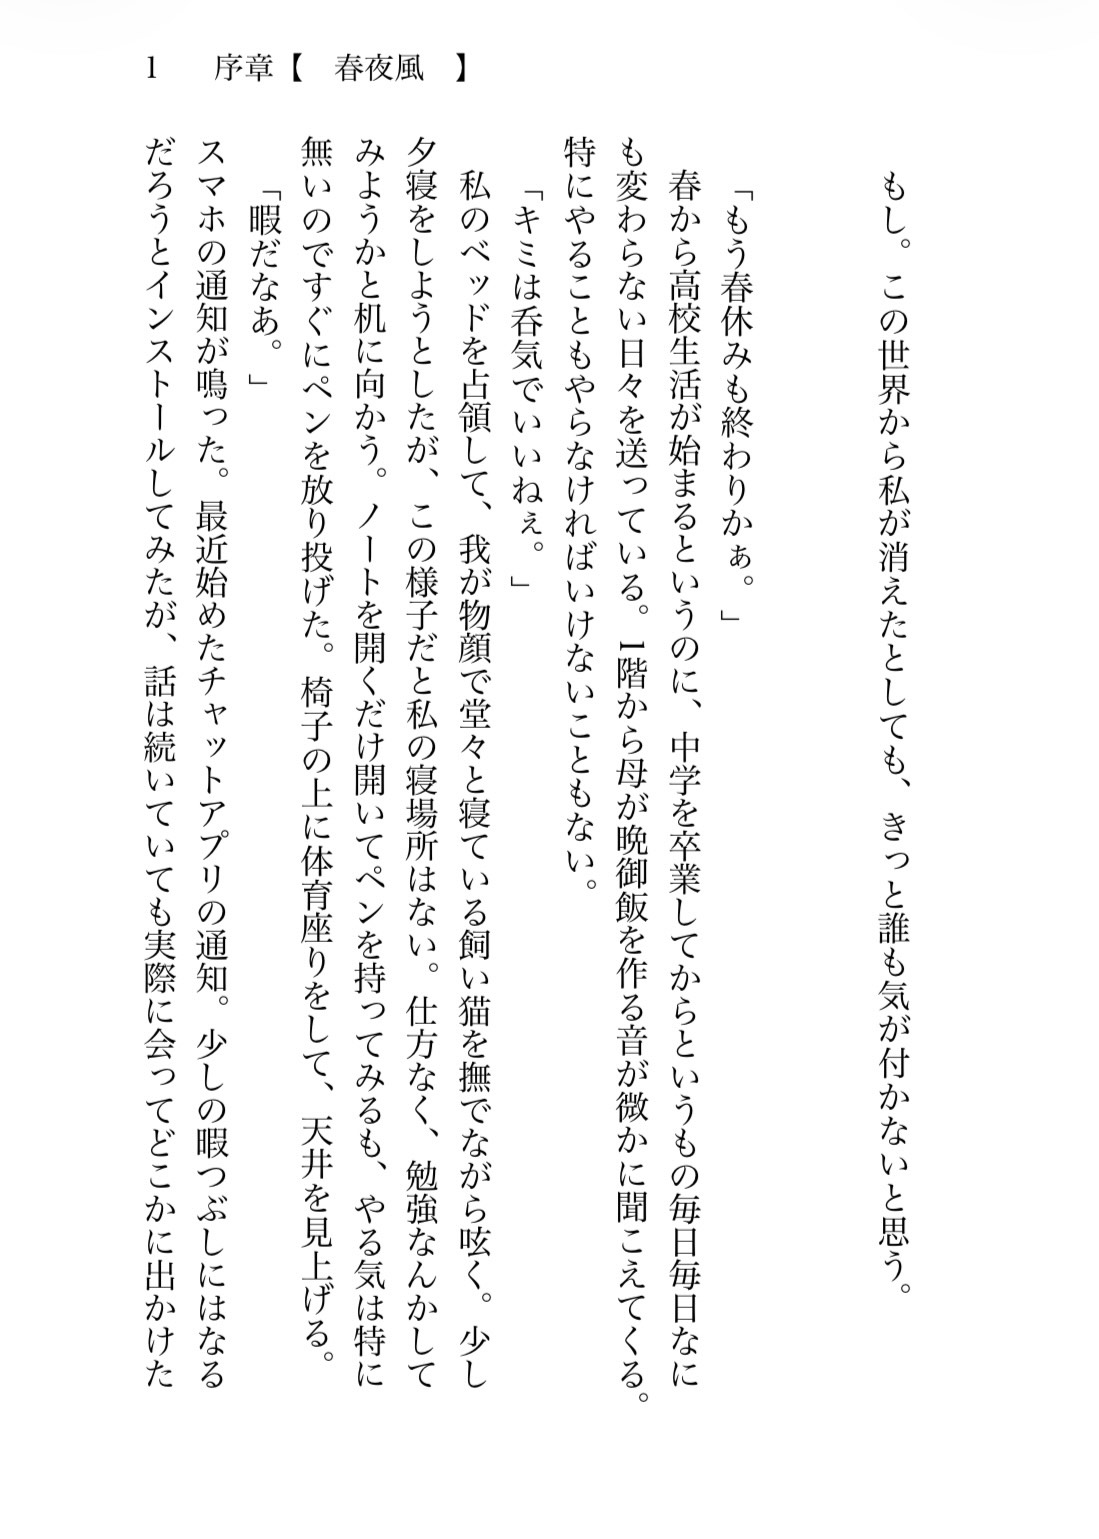 1　序章【　春夜風　】
もし。この世界から私が消えたとしても、きっと誰も気が付かないと思う。
「もう春休みも終わりかぁ。」
春から高校生活が始まるというのに、中学を卒業してからというもの毎日毎日なに
も変わらない日々を送っている。1階から母が晩御飯を作る音が微かに聞こえてくる。
特にやることもやらなければいけないこともない。
「キミは呑気でいいねぇ。」
私のベッドを占領して、我が物顔で堂々と寝ている飼い猫を撫でながら呟く。少し
夕寝をしようとしたが、この様子だと私の寝場所はない。仕方なく、勉強なんかして
みようかと机に向かう。ノートを開くだけ開いてペンを持ってみるも、やる気は特に
無いのですぐにペンを放り投げた。椅子の上に体育座りをして、天井を見上げる。
「暇だなあ。」
スマホの通知が鳴った。最近始めたチャットアプリの通知。少しの暇つぶしにはなる
だろうとインストールしてみたが、話は続いていても実際に会ってどこかに出かけた